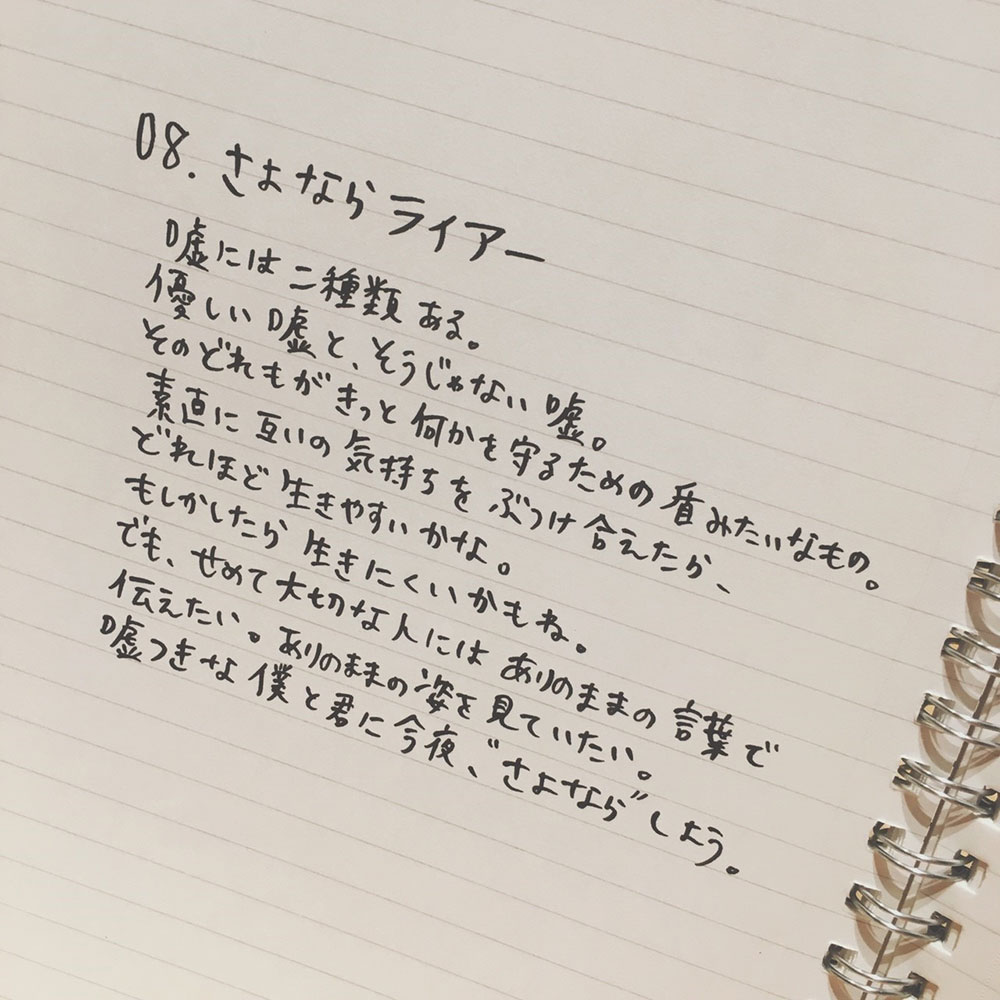 08. さよならライアー
嘘には二種類ある。
優しい嘘と、そうじゃない嘘。
そのどれもがきっと何かを守るための盾みたいなもの。
素直に互いの気持ちをぶつけ合えたら、
どれほど生きやすいかな。
もしかしたら生きにくいかもね。
でも、せめて大切な人にはありのままの言葉で
伝えたい。ありのままの姿を見ていたい。
嘘つきな僕と君に今夜、“さよなら”しよう。